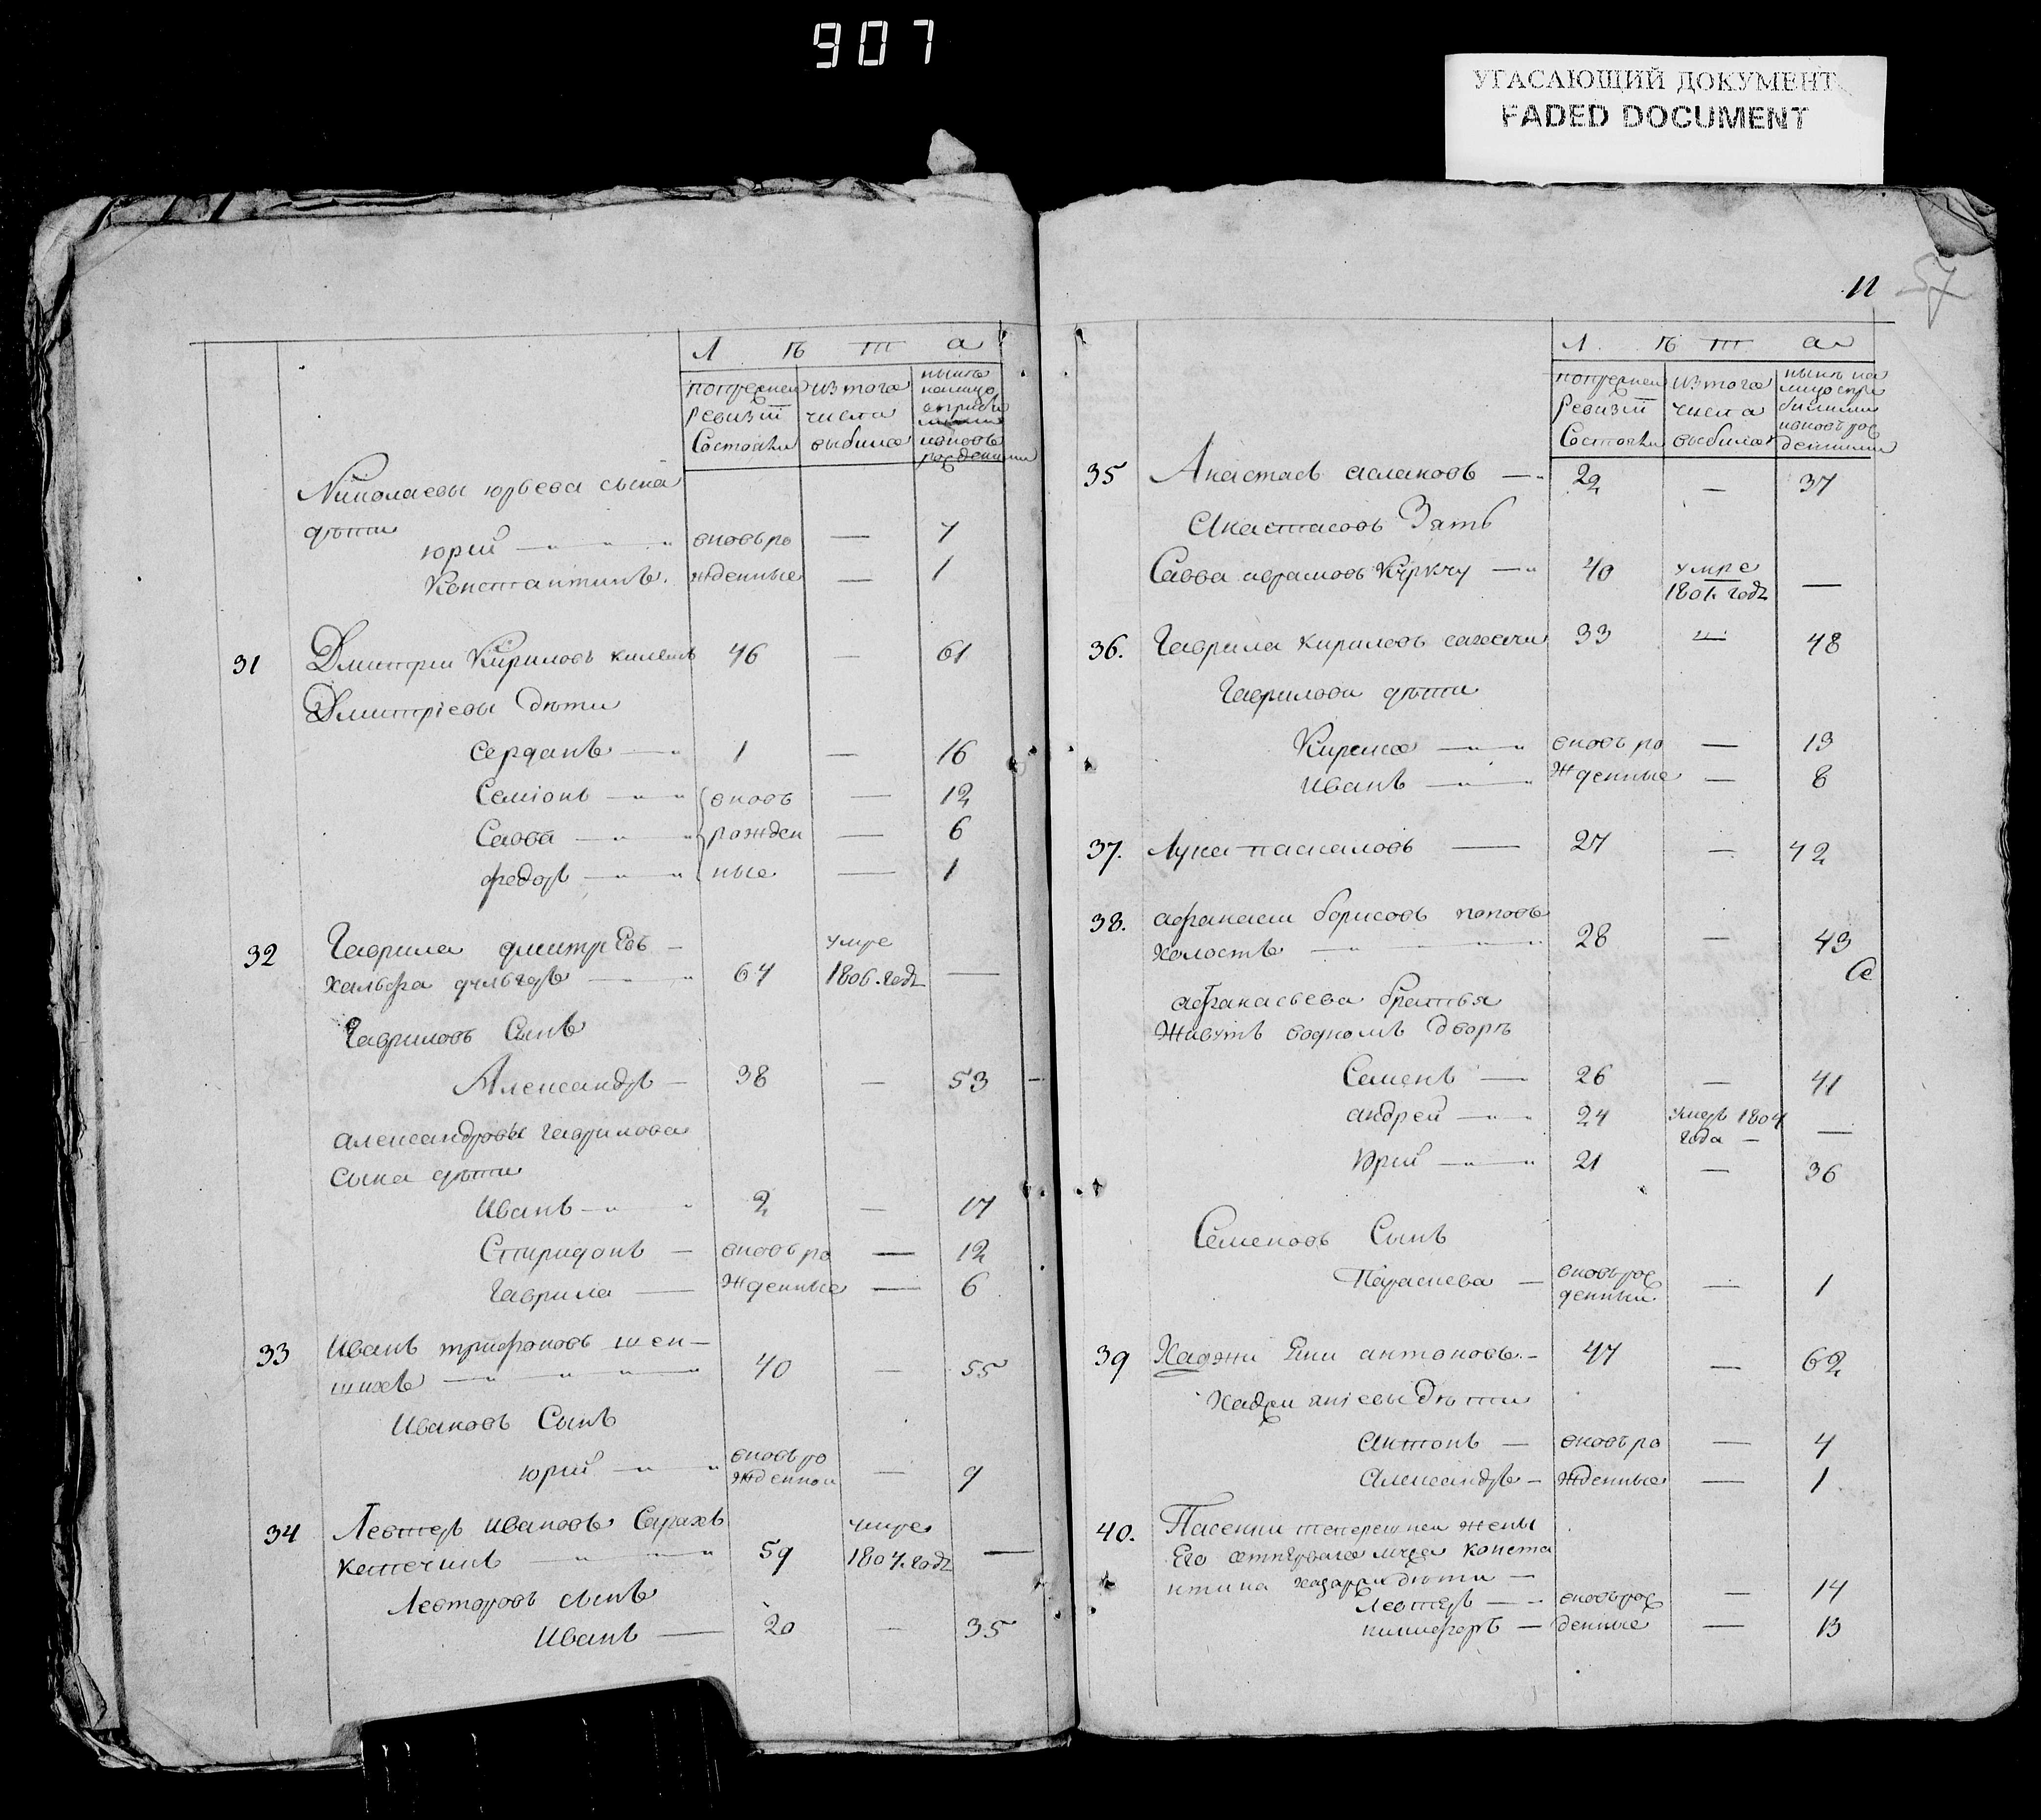 907
УГАСАЮЩИЙ ДОКУМЕНТ
FADED DOCUMENT
57
11
Л ѣ т а
попрежней ревизіи состояли
изтого числа выбыло
нынѣ налицо
Николаевы юрьева сына
дѣти
юрий вновь ро — 7
Константинъ. жденные — 1
31 Дмитрии Кириловъ 46 — 61
Дмитріевы дѣти
Серданъ 1 — 16
Семіонъ вновь — 12
Савва рожден — 6
федоръ ные — 1
32 Гаврила дмитрЕвъ — умре
халфа дульгеръ 64 1806. годъ —
Гавриловъ Сынъ
Александръ — 38 — 53
александровы гаврилова
сына дѣти
Иванъ 2 — 17
Спиридонъ — вновь ро — 12
Гаврила — жденные — 6
33 Иванъ трифоновъ
40 — 55
Ивановъ Сынъ
юрий вновь ро
жденнои — 9
34 Левтеръ ивановъ умре
59 1804. годъ —
Левтеровъ сынъ
Иванъ — 20 — 35
Л ѣ т а
попрежней ревизіи состояли
изтого числа выбыло
нынѣ налицо
35 Анастасъ аслановъ — 22 — 37
Анастасовъ Зять
Савва аврамовъ Куркчу — 40 умре —
1801. годъ
36. Гаврила кириловъ 33 — 48
Гавриловы дѣти
Кирила вновь ро — 13
Иванъ жденные — 8
37. Лука паскаловъ — 27 — 42
38. афанасеи борисовъ поповъ
холостъ 28 — 43
афанасьева братья
Живутъ водномъ дворѣ
Семенъ — 26 — 41
андрей 24 умеръ 1804
года — —
Юрий 21 — 36
Семеновъ Сынъ
Параскева — вновь рож
денный. — 1
39 Хаджи Яни антоновъ. — 47 — 62
Хаджи яніевы дѣти
Антонъ — вновь ро — 4
Александръ — жденные — 1
40. Пасенки теперешнеи жены
Его отперваго мужа конста
нтина дѣти —
Левтеръ вновь рож — 14
никифоръ — денные — 13